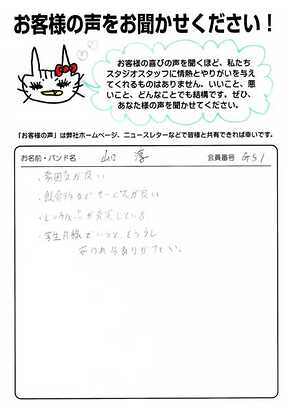 お客様の声をお聞かせください！
お客様の喜びの声を聞くほど、私たち
スタジオスタッフに情熱とやりがいを与え
てくれるものはありません。いいこと、悪
いこと、どんなことでも結構です。ぜひ、
あなた様の声を聞かせてください。
「お客様の声」は弊社ホームページ、ニュースレターなどで皆様と共有できれば幸いです。
お名前・バンド名 山口 淳 会員番号 G51
・雰囲気が良い
・飲食物など サービスが良い
・が充実している
・学生
ありがたい。